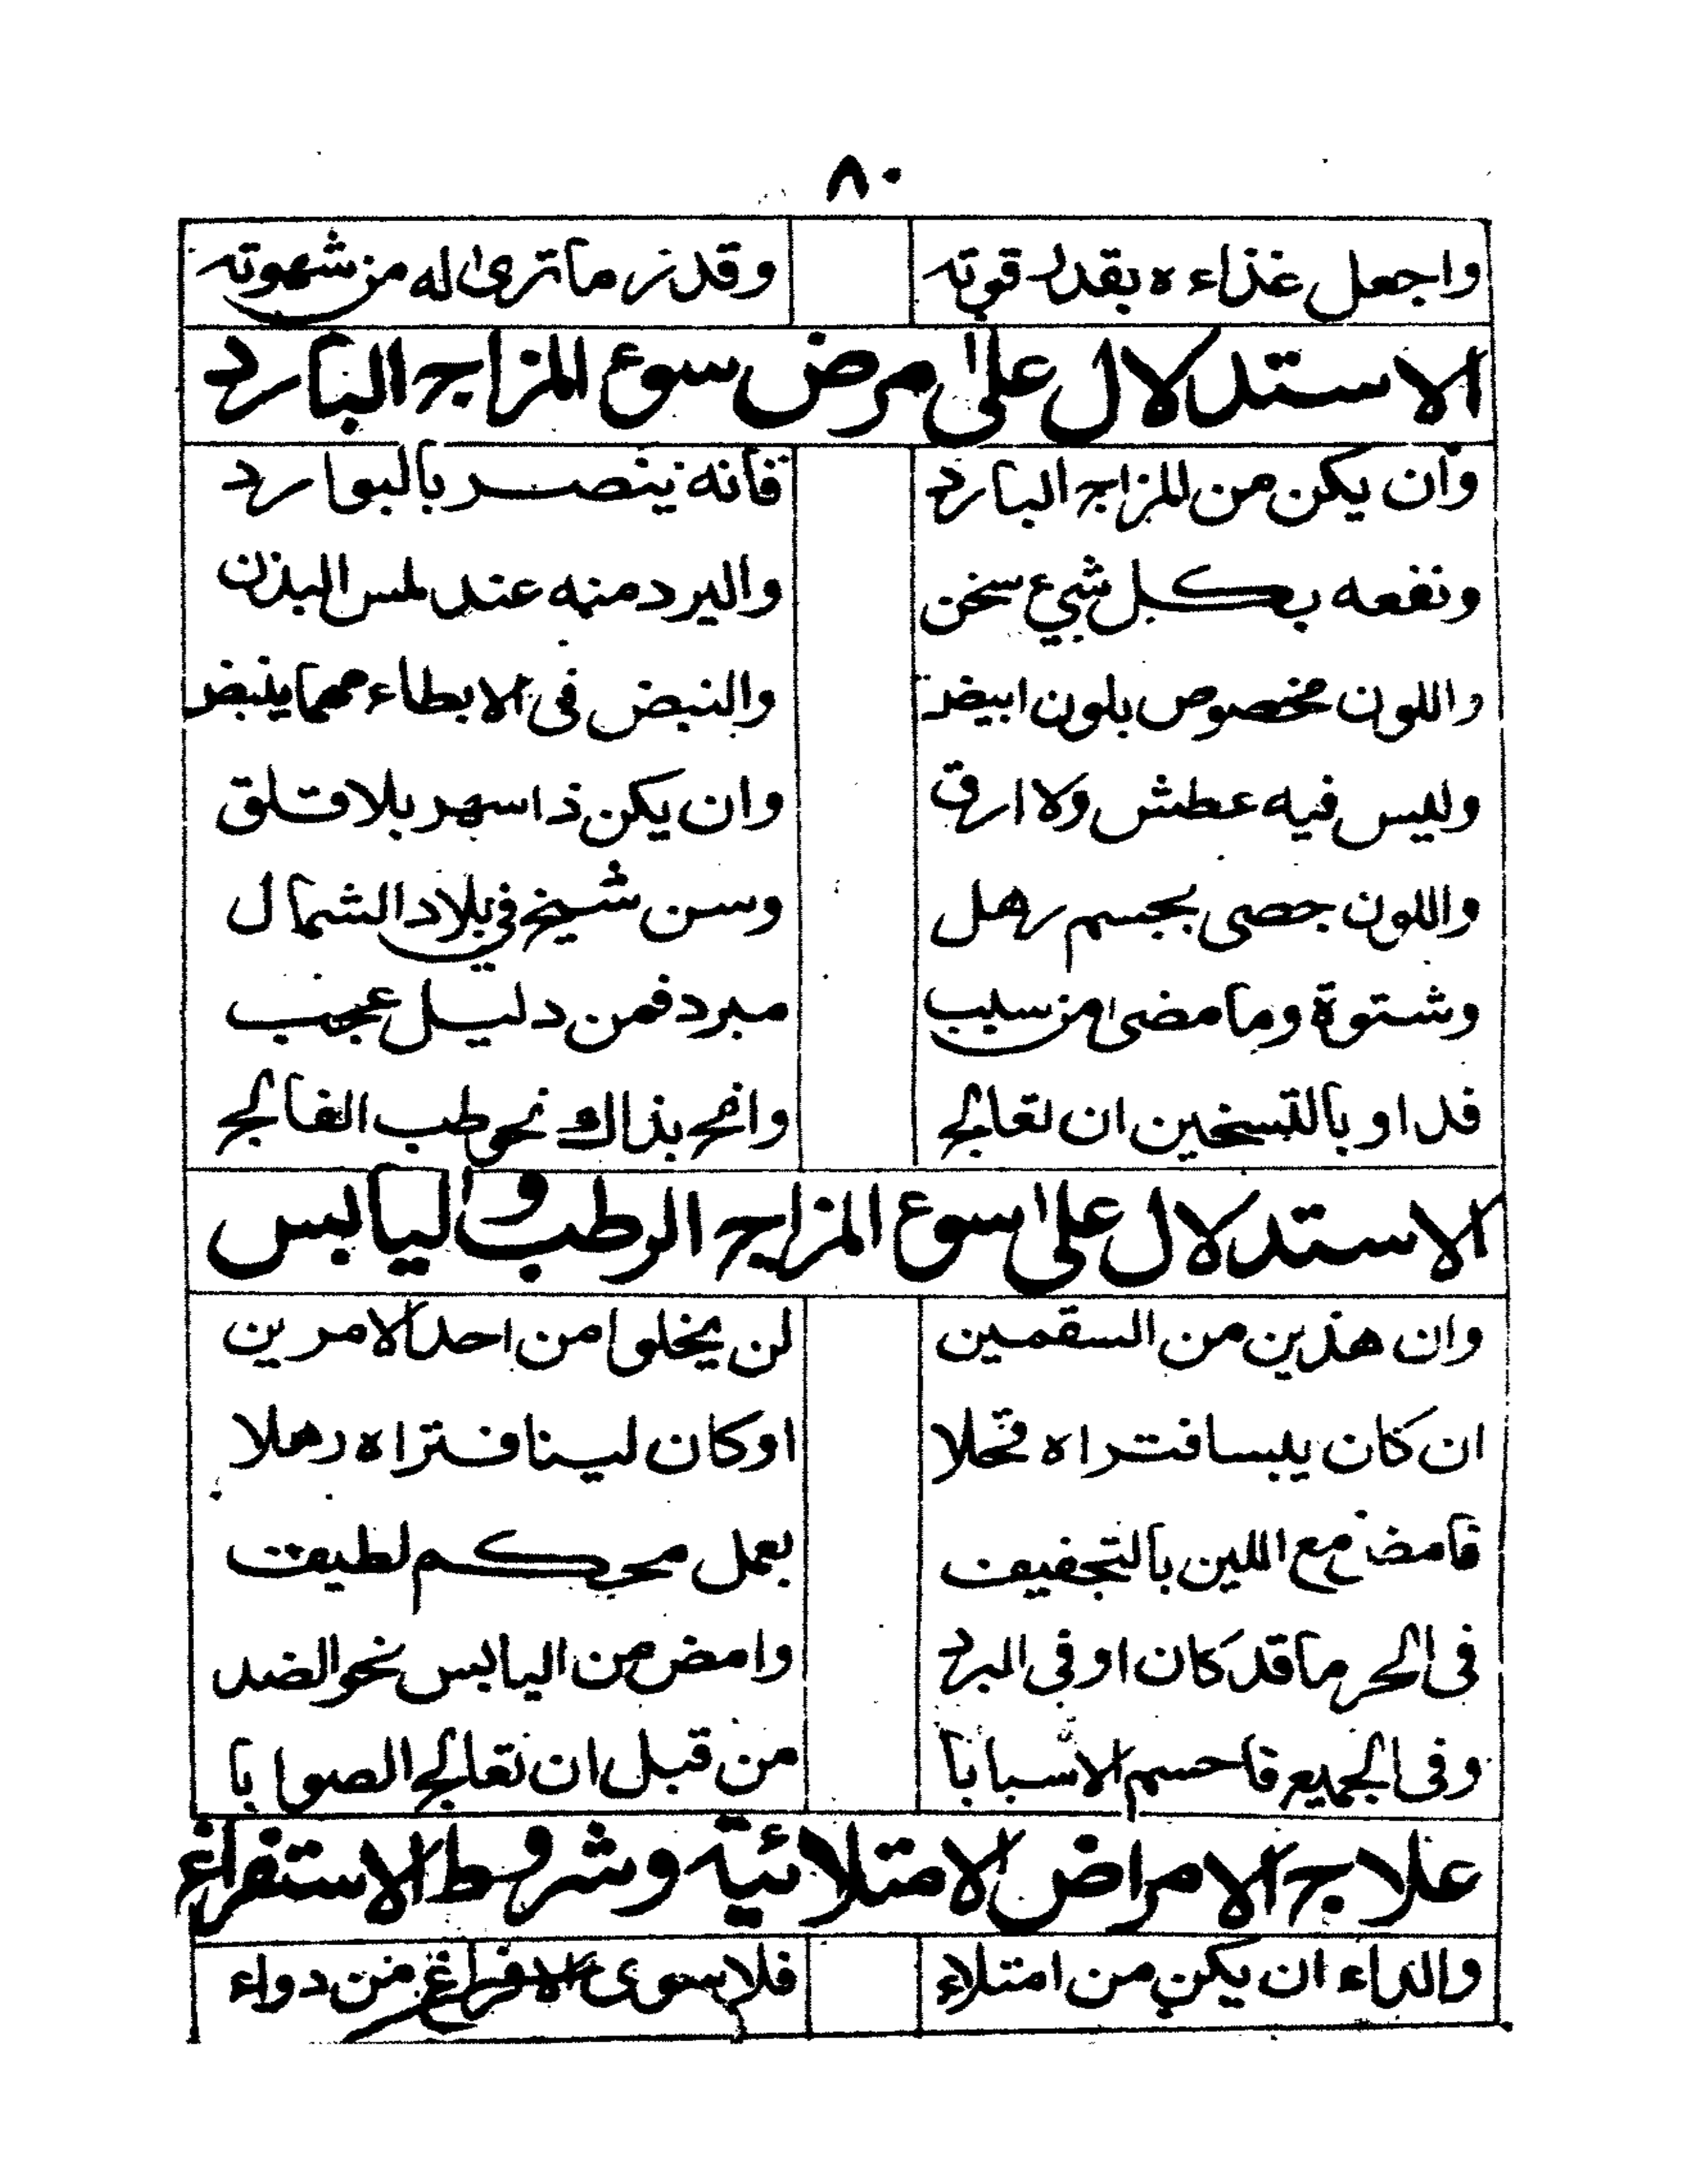 ٨٠
واجعل غذاءه بقدر قوته وقدر ما ترى له من شهوته
الاستدلال على مرض سوء المزاج البارد
وان يكن من المزاج البارد فانه ينصر بالبوارد
ونفعه بكل شيء سخن والبرد منه عند لمس البدن
واللون مخصوص بلون ابيض والنبض فى الابطاء مهما ينبض
وليس فيه عطش ولا ارق وان يكن ذا سهر بلا قلق
واللون جصى بجسم رهل وسن شيخ فى بلاد الشمال
وشتوة وما مضى من سبب مبرد فمن دليل عجب
فداو بالتسخين ان تعالج وانح بذاك نحو طب الفالج
الاستدلال على سوء المزاج الرطب واليابس
وان هذين من السقمين لن يخلوا من احد الامرين
ان كان يبسا فتراه قحلا او كان لينا فتراه رهلا
فامض مع اللين بالتجفيف بعمل محكم لطيف
فى الحر ما قد كان او فى البرد وامض من اليابس نحو الضد
وفى الجميع فاحسم الاسبابا من قبل ان تعالج الصوابا
علاج الامراض الامتلائية وشروط الاستفراغ
والداء ان يكن من امتلاء فلا سوى الافراغ من دواء